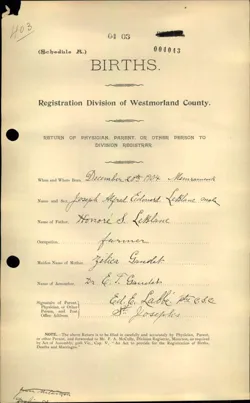 403
04 03
(Schedule A.)
004043
BIRTHS.
Registration Division of Westmorland County.
RETURN OF PHYSICIAN, PARENT, OR OTHER PERSON TO
DIVISION REGISTRAR.
When and Where Born, December 20th 1904 Memramcook
Name and Sex, Joseph Alfred Edmond LeBlanc male
Name of Father, Honoré S. LeBlanc
Occupation, farmer
Maiden Name of Mother, Zelica Gaudet
Name of Accoucheur, Dr E. T. Gaudet
Signature of Parent,
Physician, or Other
Person, and Post
Office Address.
Ed. E. Labbé
St Josephs
NOTE.—The above Return is to be filled up carefully and accurately by Physician, Parent,
or other Person, and forwarded to
Division Registrar, Moncton, as required
by Act of Assembly,
Cap. V., "An Act to provide for the Registration of Births,
Deaths and Marriages."